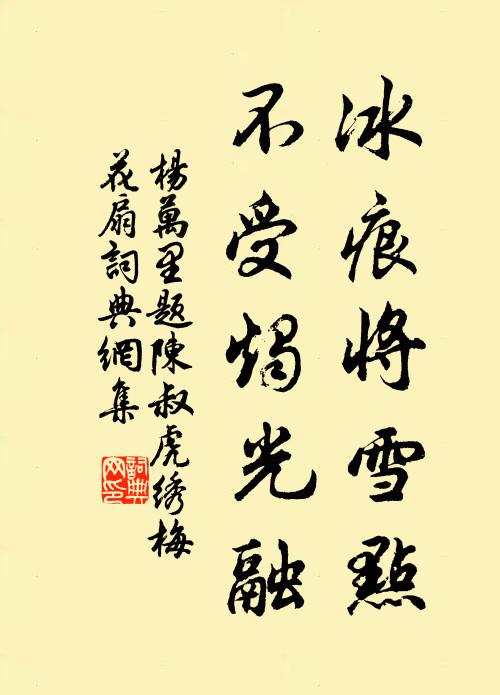 冰痕将雪點
不受燭光融
楊萬里題陳叔虎绣梅
花扇詞典網集
詞典
网印